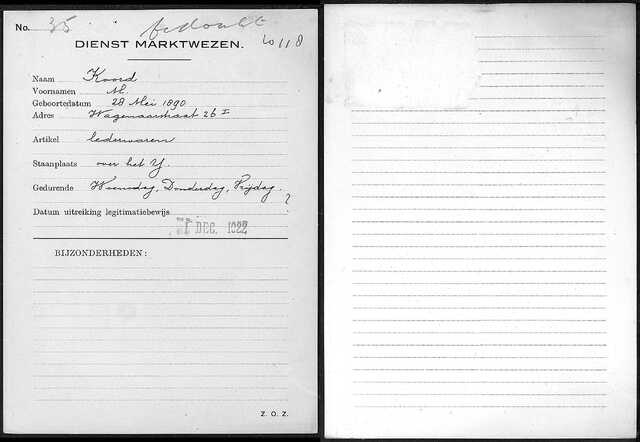 No. 35
10118
DIENST MARKTWEZEN.
Naam Koord
Voornamen M.
Geboortedatum 28 Mei 1890
Adres Wagenaarstraat 26 I
Artikel lederwaren
Staanplaats over het Y.
Gedurende Woensdag, Donderdag, Vrijdag.
Datum uitreiking legitimatiebewijs
DEC. 1922
BIJZONDERHEDEN:
Z. O. Z.